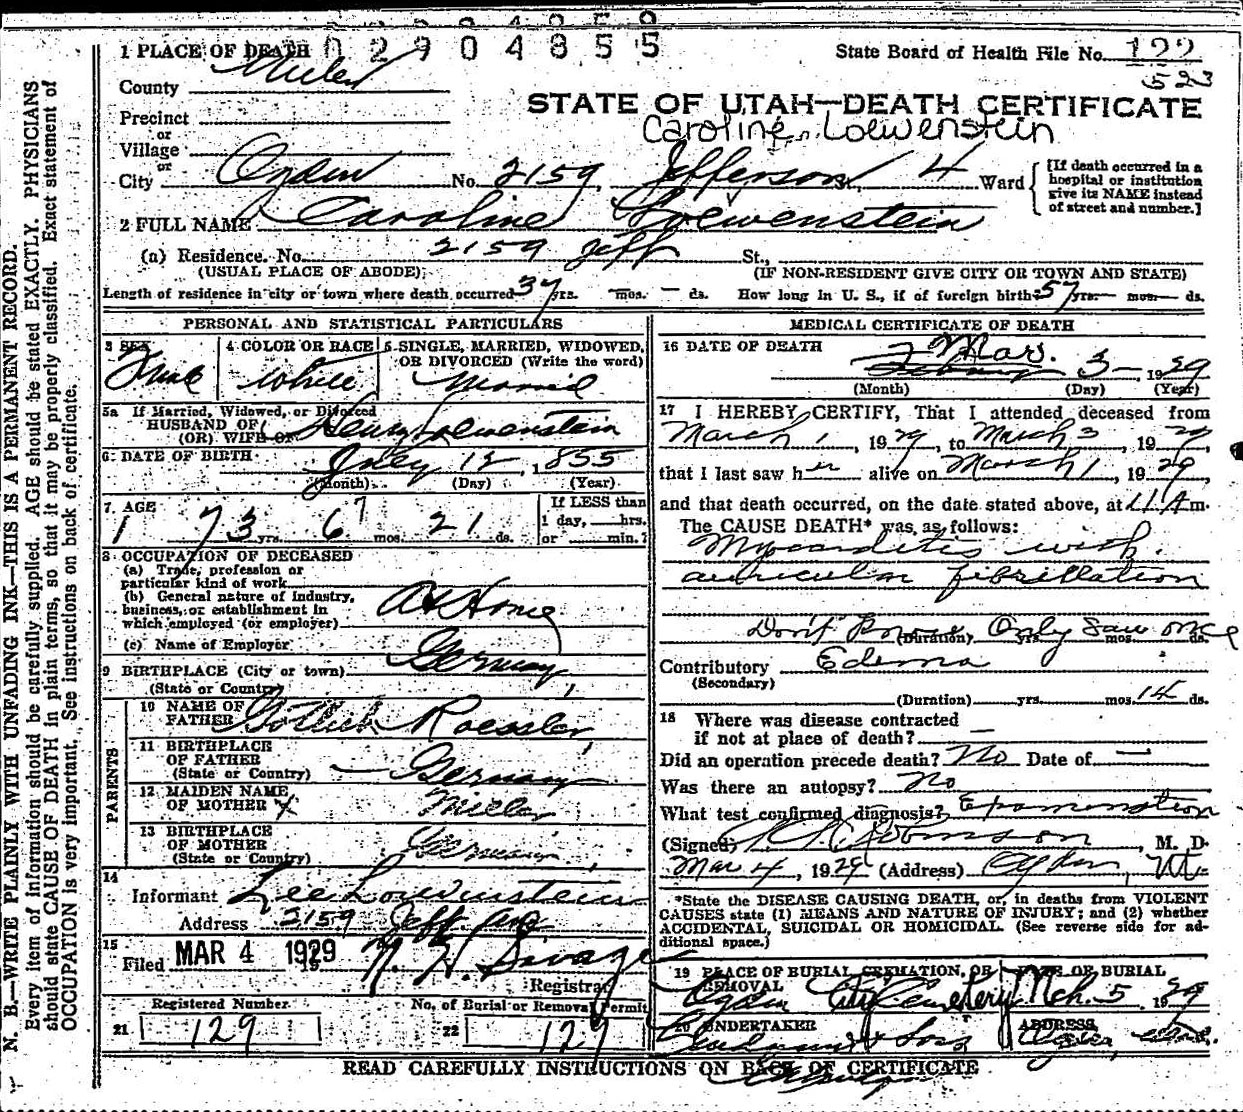 0 2 9 0 4 8 5 5
1 PLACE OF DEATH
State Board of Health File No. 122
523
County
STATE OF UTAH—DEATH CERTIFICATE
Caroline Loewenstein
Precinct
or
Village
or
City Ogden No. 2159 Jefferson St., 4 Ward
[If death occurred in a hospital or institution give its NAME instead of street and number.]
2 FULL NAME Caroline Loewenstein
(a) Residence. No. 2159 Jeff St.,
(USUAL PLACE OF ABODE)
(IF NON-RESIDENT GIVE CITY OR TOWN AND STATE)
Length of residence in city or town where death occurred 37 yrs. — mos. — ds. How long in U. S., if of foreign birth? 57 yrs. — mos. — ds.
PERSONAL AND STATISTICAL PARTICULARS
3 SEX
4 COLOR OR RACE White
5 SINGLE, MARRIED, WIDOWED, OR DIVORCED (Write the word)
5a If Married, Widowed, or Divorced
HUSBAND OF
(OR) WIFE OF Henry Loewenstein
6 DATE OF BIRTH July 12, 1855
(Month) (Day) (Year)
7. AGE
73 yrs. 6 7 mos. 21 ds.
If LESS than
1 day, hrs.
or min.?
8 OCCUPATION OF DECEASED
(a) Trade, profession or
particular kind of work
(b) General nature of industry,
business, or establishment in
which employed (or employer) At Home
(c) Name of Employer
9 BIRTHPLACE (City or town) Germany
(State or Country)
PARENTS
10 NAME OF
FATHER Gottlieb Roessler
11 BIRTHPLACE
OF FATHER
(State or Country) Germany
12 MAIDEN NAME
OF MOTHER Miller
13 BIRTHPLACE
OF MOTHER
(State or Country) Germany
14
Informant Lee Loewenstein
Address 2159 Jeff Ave
15
Filed MAR 4 1929
Registrar
Registered Number
No. of Burial or Removal Permit
21 129
22 129
MEDICAL CERTIFICATE OF DEATH
16 DATE OF DEATH
Mar. 3 — 1929
(Month) (Day) (Year)
17 I HEREBY CERTIFY, That I attended deceased from
March 1, 1929, to March 3, 1929
that I last saw her alive on March 1, 1929,
and that death occurred, on the date stated above, at 11 A m.
The CAUSE DEATH* was as follows:
Myocarditis with
auricular fibrillation
Don't Know (Duration) Only Saw once yrs. mos. ds.
Contributory Edema
(Secondary)
(Duration) yrs. mos. 14 ds.
18 Where was disease contracted
if not at place of death? —
Did an operation precede death? No Date of —
Was there an autopsy? No
What test confirmed diagnosis? Examination
(Signed) M. D.
Mar 4, 1929 (Address) Ogden, Ut.
*State the DISEASE CAUSING DEATH, or, in deaths from VIOLENT
CAUSES state (1) MEANS AND NATURE OF INJURY; and (2) whether
ACCIDENTAL, SUICIDAL OR HOMICIDAL. (See reverse side for ad-
ditional space.)
19 PLACE OF BURIAL CREMATION, OR REMOVAL
DATE OF BURIAL
Ogden City Cemetery Mch. 5 1929
20 UNDERTAKER
ADDRESS
& Sons
READ CAREFULLY INSTRUCTIONS ON BACK OF CERTIFICATE
N. B.—WRITE PLAINLY WITH UNFADING INK—THIS IS A PERMANENT RECORD.
Every item of information should be carefully supplied. AGE should be stated EXACTLY. PHYSICIANS
should state CAUSE OF DEATH in plain terms, so that it may be properly classified. Exact statement of
OCCUPATION is very important. See instructions on back of certificate.